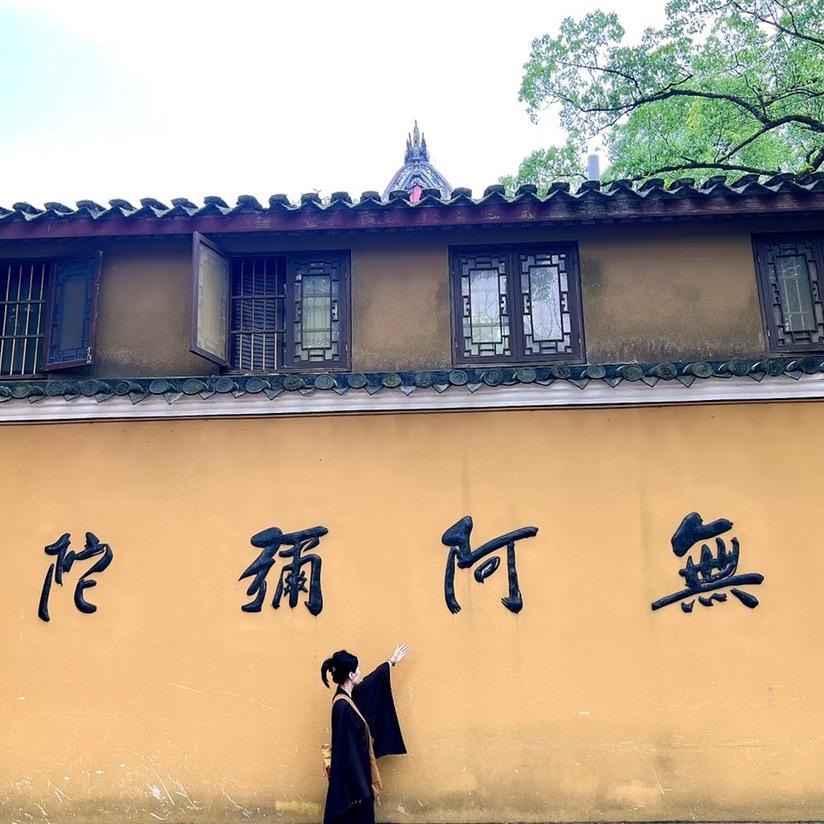 無阿彌陀